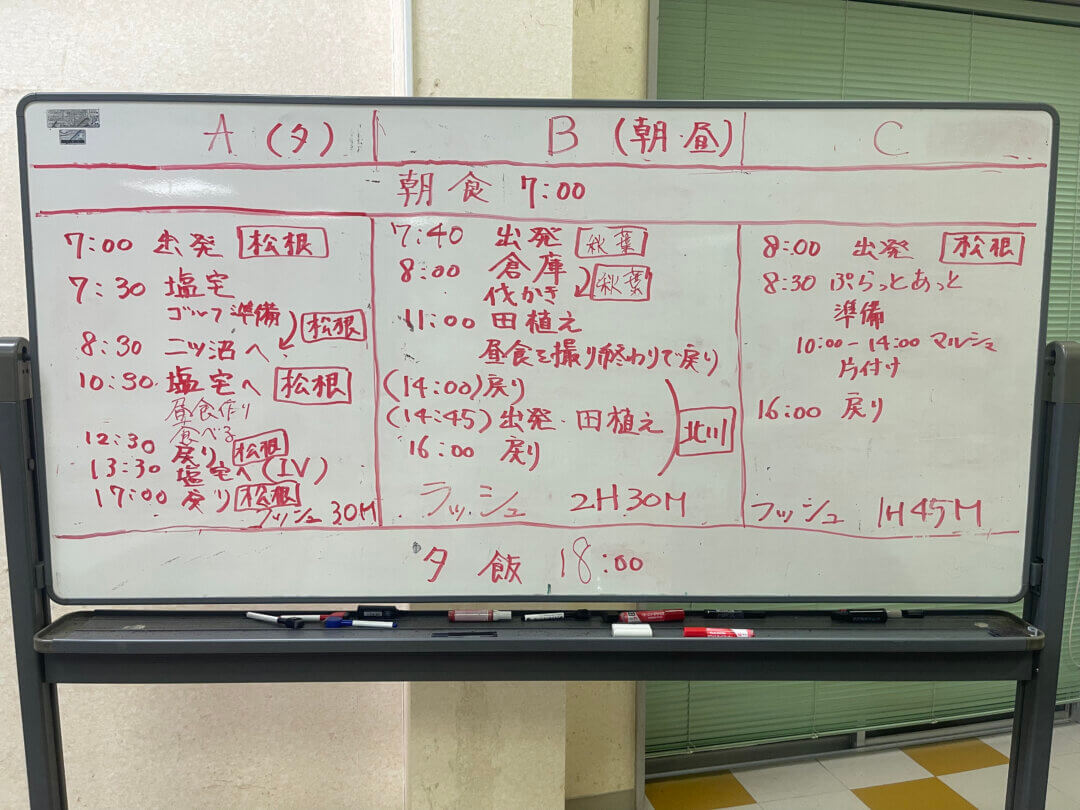 A (夕)
B (朝・昼)
C
朝食 7:00
7:00 出発 松根
7:30 塩宅
ゴルフ準備
松根
8:30 二ツ沼へ
10:30 塩宅へ 松根
昼食作り
食べる
12:30 戻り 松根
13:30 塩宅へ (IV)
17:00 戻り 松根
ラッシュ 30M
7:40 出発 秋葉
8:00 倉庫
代かき 秋葉
11:00 田植え
昼食を撮り終わりで戻り
(14:00) 戻り
(14:45) 出発・田植え
北川
16:00 戻り
ラッシュ 2H30M
8:00 出発 松根
8:30 ぷらっとあっと
準備
10:00-14:00 マルシェ
片付け
16:00 戻り
ラッシュ 1H45M
夕飯 18:00